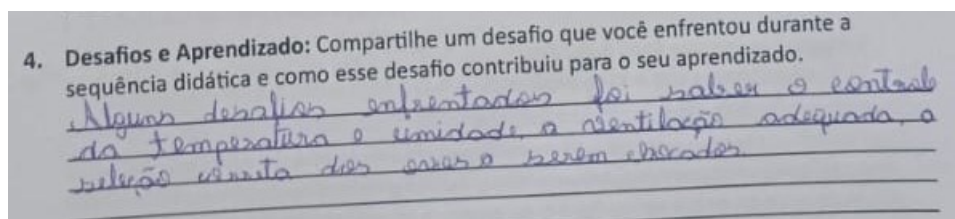 4. Desafios e Aprendizado: Compartilhe um desafio que você enfrentou durante a
sequência didática e como esse desafio contribuiu para o seu aprendizado.
Alguns desafios enfrentados foi saber o control
da temperatura e umidade, a ventilação adequada, a
seleção correta dos a serem chocados